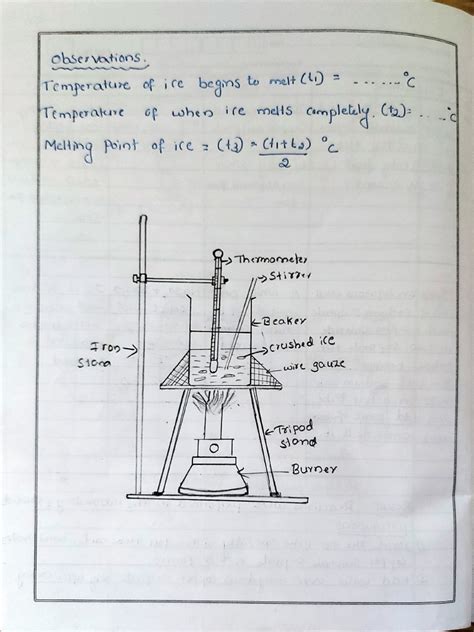 Observations.
Temperature of ice begins to melt (t1) = ........ °C
Temperature of when ice melts completely. (t2)= .... °C
Melting Point of ice = (t3) = (t1+t2)/2 °C
Thermometer
Stirrer
Beaker
Iron Stand
crushed ice
wire gauze
Tripod stand
Burner